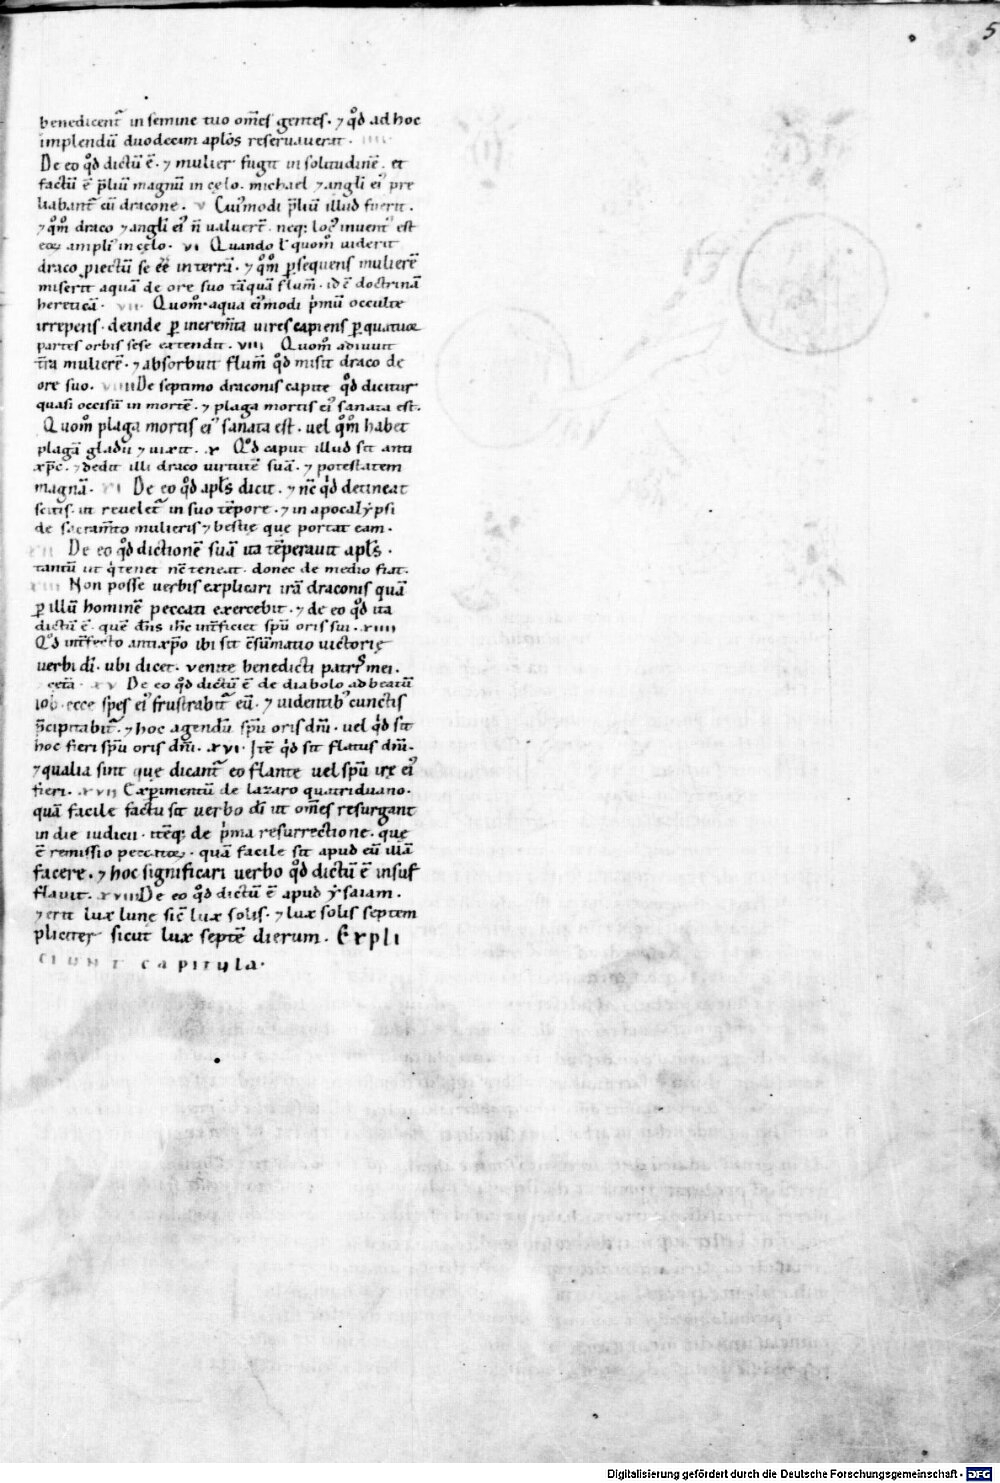 5
benedicent᷒ in semine tuo om̅es gentes. ⁊ qͦd ad hoc
implendu̅ duodecim aplo̅s reseruauerit. IIII.
De eo qͦd dictu̅ e̅. ⁊ mulier fugit in solitudine̅. et
factu̅ e̅ p̅liu̅ magnu̅ in cęlo. michael ⁊ angli ei᷒ pre
liabant᷒ cu̅ dracone. V Cui᷒modi p̅liu̅ illud fuerit.
⁊ qͦm̅ draco ⁊ angli ei᷒ n̅ ualuer̅t. neq; loc᷒ inuent᷒ est
eoꝝ ampli᷒ in cęlo. VI Quando l̅ quom̅ uiderit
draco piectu̅ se e̅e in terra̅. ⁊ qͦm̅ p̱sequens muliere̅
miserit aqua̅ de ore suo ta̅qua̅ flum̅. id e̅ doctrina̅
heretica̅. VII. Quom̅ aqua ei᷒modi p̍mu̅ occulte
irrepens. deinde ꝑ increm̅ta uires capiens ꝑ quatuor
partes orbis sese extendit. VIII Quom̅ adiuuit
t̅ra muliere̅. ⁊ absorbuit flum̅ qͦd misit draco de
ore suo. VIIII De septimo draconis capite qͦd dicitur
quasi occisu̅ in morte̅. ⁊ plaga mortis ei᷒ sanata est.
Quom̅ plaga mortis ei᷒ sanata est. uel qͦm̅ habet
plaga̅ gladii ⁊ uixit. X Qͦd caput illud sit anti
xp̅c. ⁊ dedit illi draco uirtute̅ sua̅. ⁊ potestatem
magna̅. XI De eo qͦd apl̅s dicit. ⁊ n̅c qͦd detineat
scitis. ut reuelet᷒ in suo te̅pore. ⁊ in apocalẏpsi
de sacram̅to mulieris ⁊ bestię que portat eam.
XII De eo qͦd dictione̅ sua̅ ita te̅perauit apl̅s.
tantu̅ ut q̍ tenet n̅c teneat. donec de medio fiat.
XIII Non posse uerbis explicari ira̅ draconis qua̅
ꝑ illu̅ homine̅ peccati exercebit. ⁊ de eo qͦd ita
dictu̅ e̅. que̅ dn̅s ih̅c int̅ficiet sp̅u oris sui. XIIII
Qͦd int̅fecto antixp̅o ibi sit c̅su̅matio uictorię
uerbi di̅. ubi dicet. uenite benedicti patr᷒ mei.
⁊ ceta̅. XV De eo qͦd dictu̅ e̅ de diabolo ad beatu̅
iob. ecce spes ei᷒ frustrabit᷒ eu̅. ⁊ uidentib᷒ cunctis
p̅cipitabit᷒. ⁊ hoc agendu̅ sp̅u oris dni̅. uel q̍d sit
hoc fieri sp̅u oris dni̅. XVI. Ite̅ q̍d sit flatus dni̅.
⁊ qualia sint que dicant᷒ eo flante uel sp̅u irę ei᷒
fieri. XVII Exꝑimentu̅ de lazaro quatriduano.
qua̅ facile factu sit uerbo di̅ ut om̅es resurgant
in die iudicii. ite̅q; de p̍ma resurrectione. que
e̅ remissio peccatoꝝ. qua̅ facile sit apud eu̅ illa̅
facere. ⁊ hoc significari uerbo qͦd dictu̅ e̅ insuf
flauit. XVIII De eo qͦd dictu̅ e̅ apud ẏsaiam.
⁊ erit lux lunę sic̅ lux solis. ⁊ lux solis septem
pliciter sicut lux septe̅ dierum. Expli
ciunt capitula.
Digitalisierung gefördert durch die Deutsche Forschungsgemeinschaft - DFG